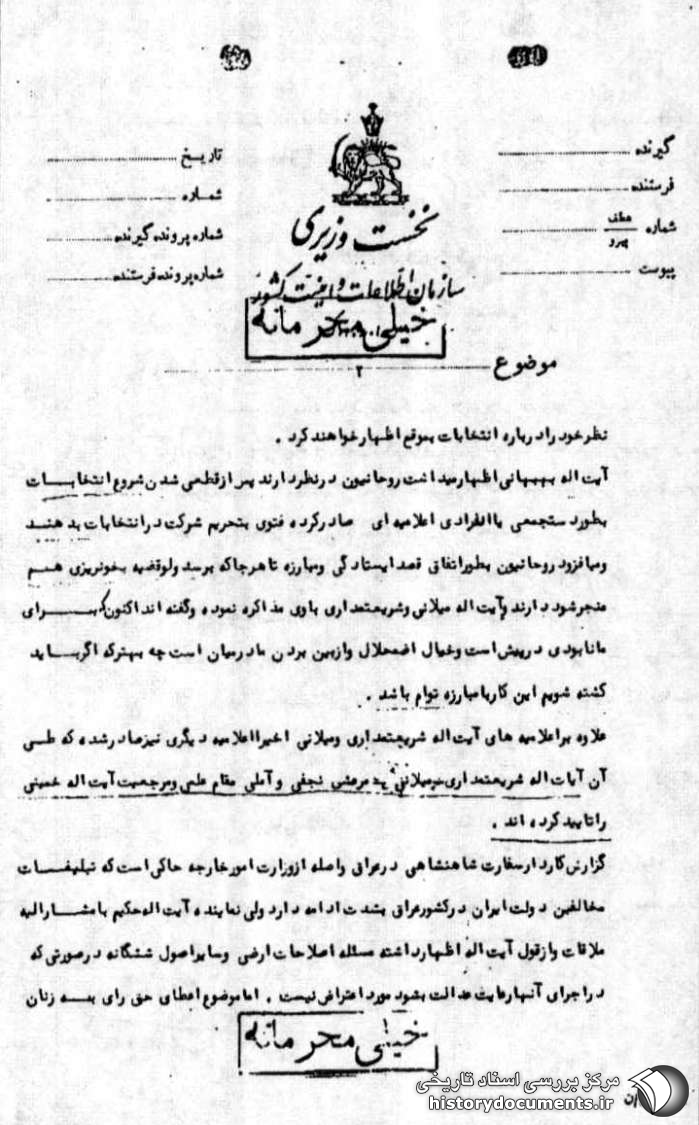 گیرنده
فرستنده
شماره عطف پیرو
پیوست
تاریخ
شماره
شماره پرونده گیرنده
شماره پرونده فرستنده
نخست وزیری
سازمان اطلاعات و امنیت کشور
خیلی محرمانه
موضوع
۲
نظرخود را درباره انتخابات بموقع اظهارخواهند کرد .
آیت اله بهبهانی اظهارمیداشت روحانیون درنظردارند پس ازقطعی شدن شروع انتخابات
بطوردستجمعی یا انفرادی اعلامیه ای صادرکرده فتوی بتحریم شرکت درانتخابات بدهند
ومیافزود روحانیون بطوراتفاق قصد ایستادگی ومبارزه تا هرجاکه برسد ولوقضیه بخونریزی هم
منجرشود دارند وآیت اله میلانی وشریعتمداری باوی مذاکره نموده وگفته اند اکنون که برای
ما نابودی درپیش است وخیال اضمحلال وازبین بردن ما درمیان است چه بهترکه اگرباید
کشته شویم این کاربا مبارزه توام باشد .
علاوه براعلامیه های آیت اله شریعتمداری ومیلانی اخیرا اعلامیه دیگری نیزصادرشده که طی
آن آیات اله شریعتمداری میلانی مرعشی نجفی و آملی مقام علمی ومرجعیت آیت اله خمینی
را تایید کرده اند .
گزارش کاردارسفارت شاهنشاهی درعراق واصله ازوزارت امورخارجه حاکی است که تبلیغات
مخالفین دولت ایران درکشورعراق بشدت ادامه دارد ولی نماینده آیت اله حکیم با مشارالیه
ملاقات وازقول آیت اله اظهارداشته مسئله اصلاحات ارضی وسایراصول ششگانه درصورتی که
دراجرای آنها رعایت عدالت بشود مورد اعتراض نیست . اما موضوع اعطای حق رای به زنان
خیلی محرمانه
مرکز بررسی اسناد تاریخی
historydocuments.ir